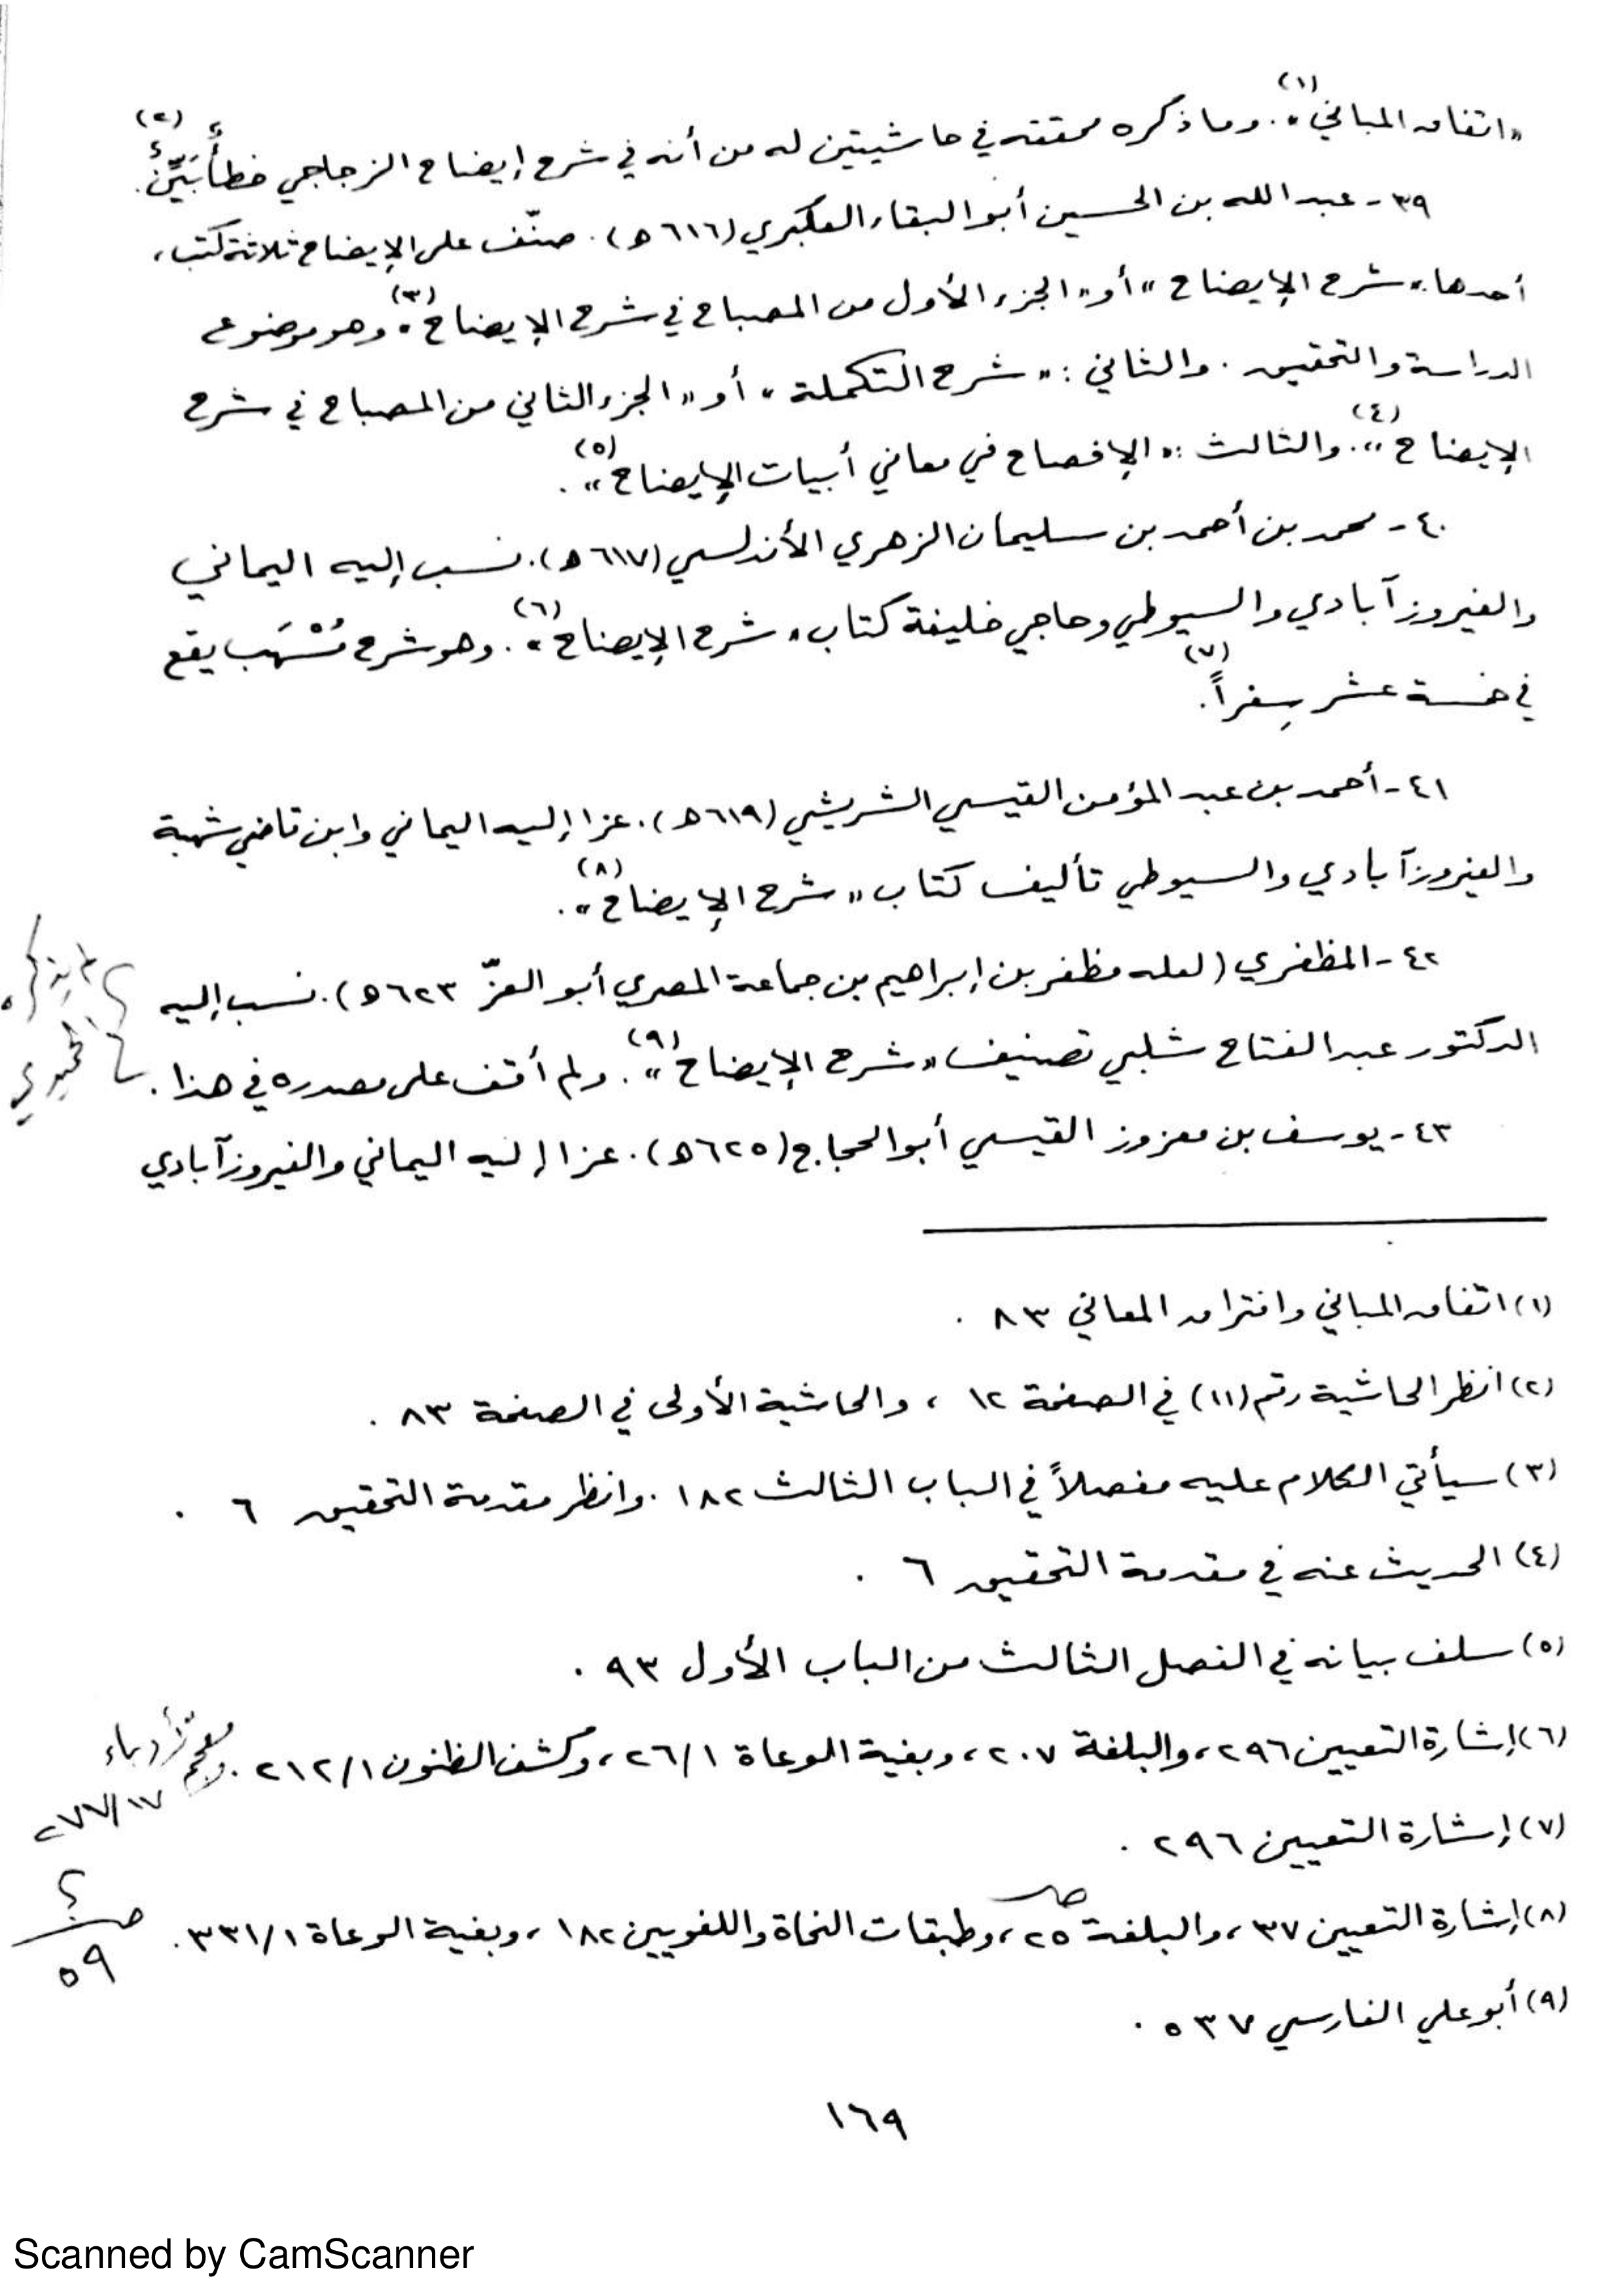 «اتفاق المباني»(١). وما ذكره محققه في حاشيتين له من أنه في شرح إيضاح الزجاجي خطأٌ بَيِّنٌ(٢).
٣٩ - عبد الله بن الحسين أبو البقاء العكبري (٦١٦ ه). صنّف على الإيضاح ثلاثة كتب،
أحدها: «شرح الإيضاح» أو «الجزء الأول من المصباح في شرح الإيضاح»(٣) وهو موضوع
الدراسة والتحقيق. والثاني: «شرح التكملة» أو «الجزء الثاني من المصباح في شرح
الإيضاح»(٤). والثالث: «الإفصاح في معاني أبيات الإيضاح»(٥).
٤٠ - محمد بن أحمد بن سليمان الزهري الأندلسي (٦١٧ ه). نسب إليه اليماني
والفيروزآبادي والسيوطي وحاجي خليفة كتاب «شرح الإيضاح»(٦). وهو شرح مُسْهَب يقع
في خمسة عشر سِفراً(٧).
٤١ - أحمد بن عبد المؤمن القيسي الشريشي (٦١٩ ه). عزا إليه اليماني وابن قاضي شهبة
والفيروزآبادي والسيوطي تأليف كتاب «شرح الإيضاح»(٨).
٤٢ - المظفري (لعله مظفر بن إبراهيم بن جماعة المصري أبو العزّ ٦٢٣ ه). نسب إليه
الدكتور عبد الفتاح شلبي تصنيف «شرح الإيضاح»(٩). ولم أقف على مصدره في هذا.
٤٣ - يوسف بن معزوز القيسي أبو الحجاج (٦٢٥ ه). عزا إليه اليماني والفيروزآبادي
(١) اتفاق المباني وافتراق المعاني ٨٣ .
(٢) انظر الحاشية رقم (١١) في الصفحة ١٢ ، والحاشية الأولى في الصفحة ٨٣ .
(٣) سيأتي الكلام عليه مفصلاً في الباب الثالث ١٨٢ . وانظر مقدمة التحقيق ٦ .
(٤) الحديث عنه في مقدمة التحقيق ٦ .
(٥) سلف بيانه في الفصل الثالث من الباب الأول ٩٣ .
(٦) إشارة التعيين ٢٩٦ ، والبلغة ٢٠٧ ، وبغية الوعاة ٢٦/١ ، وكشف الظنون ٢١٢/١ . ومعجم الأدباء
٢٧٧/١٧
(٧) إشارة التعيين ٢٩٦ .
(٨) إشارة التعيين ٣٧ ، والبلغة ٢٥ ، وطبقات النحاة واللغويين ١٨٢ ، وبغية الوعاة ٣٣١/١ .
؟
٥٩
(٩) أبو علي الفارسي ٥٣٧ .
١٦٩
Scanned by CamScanner